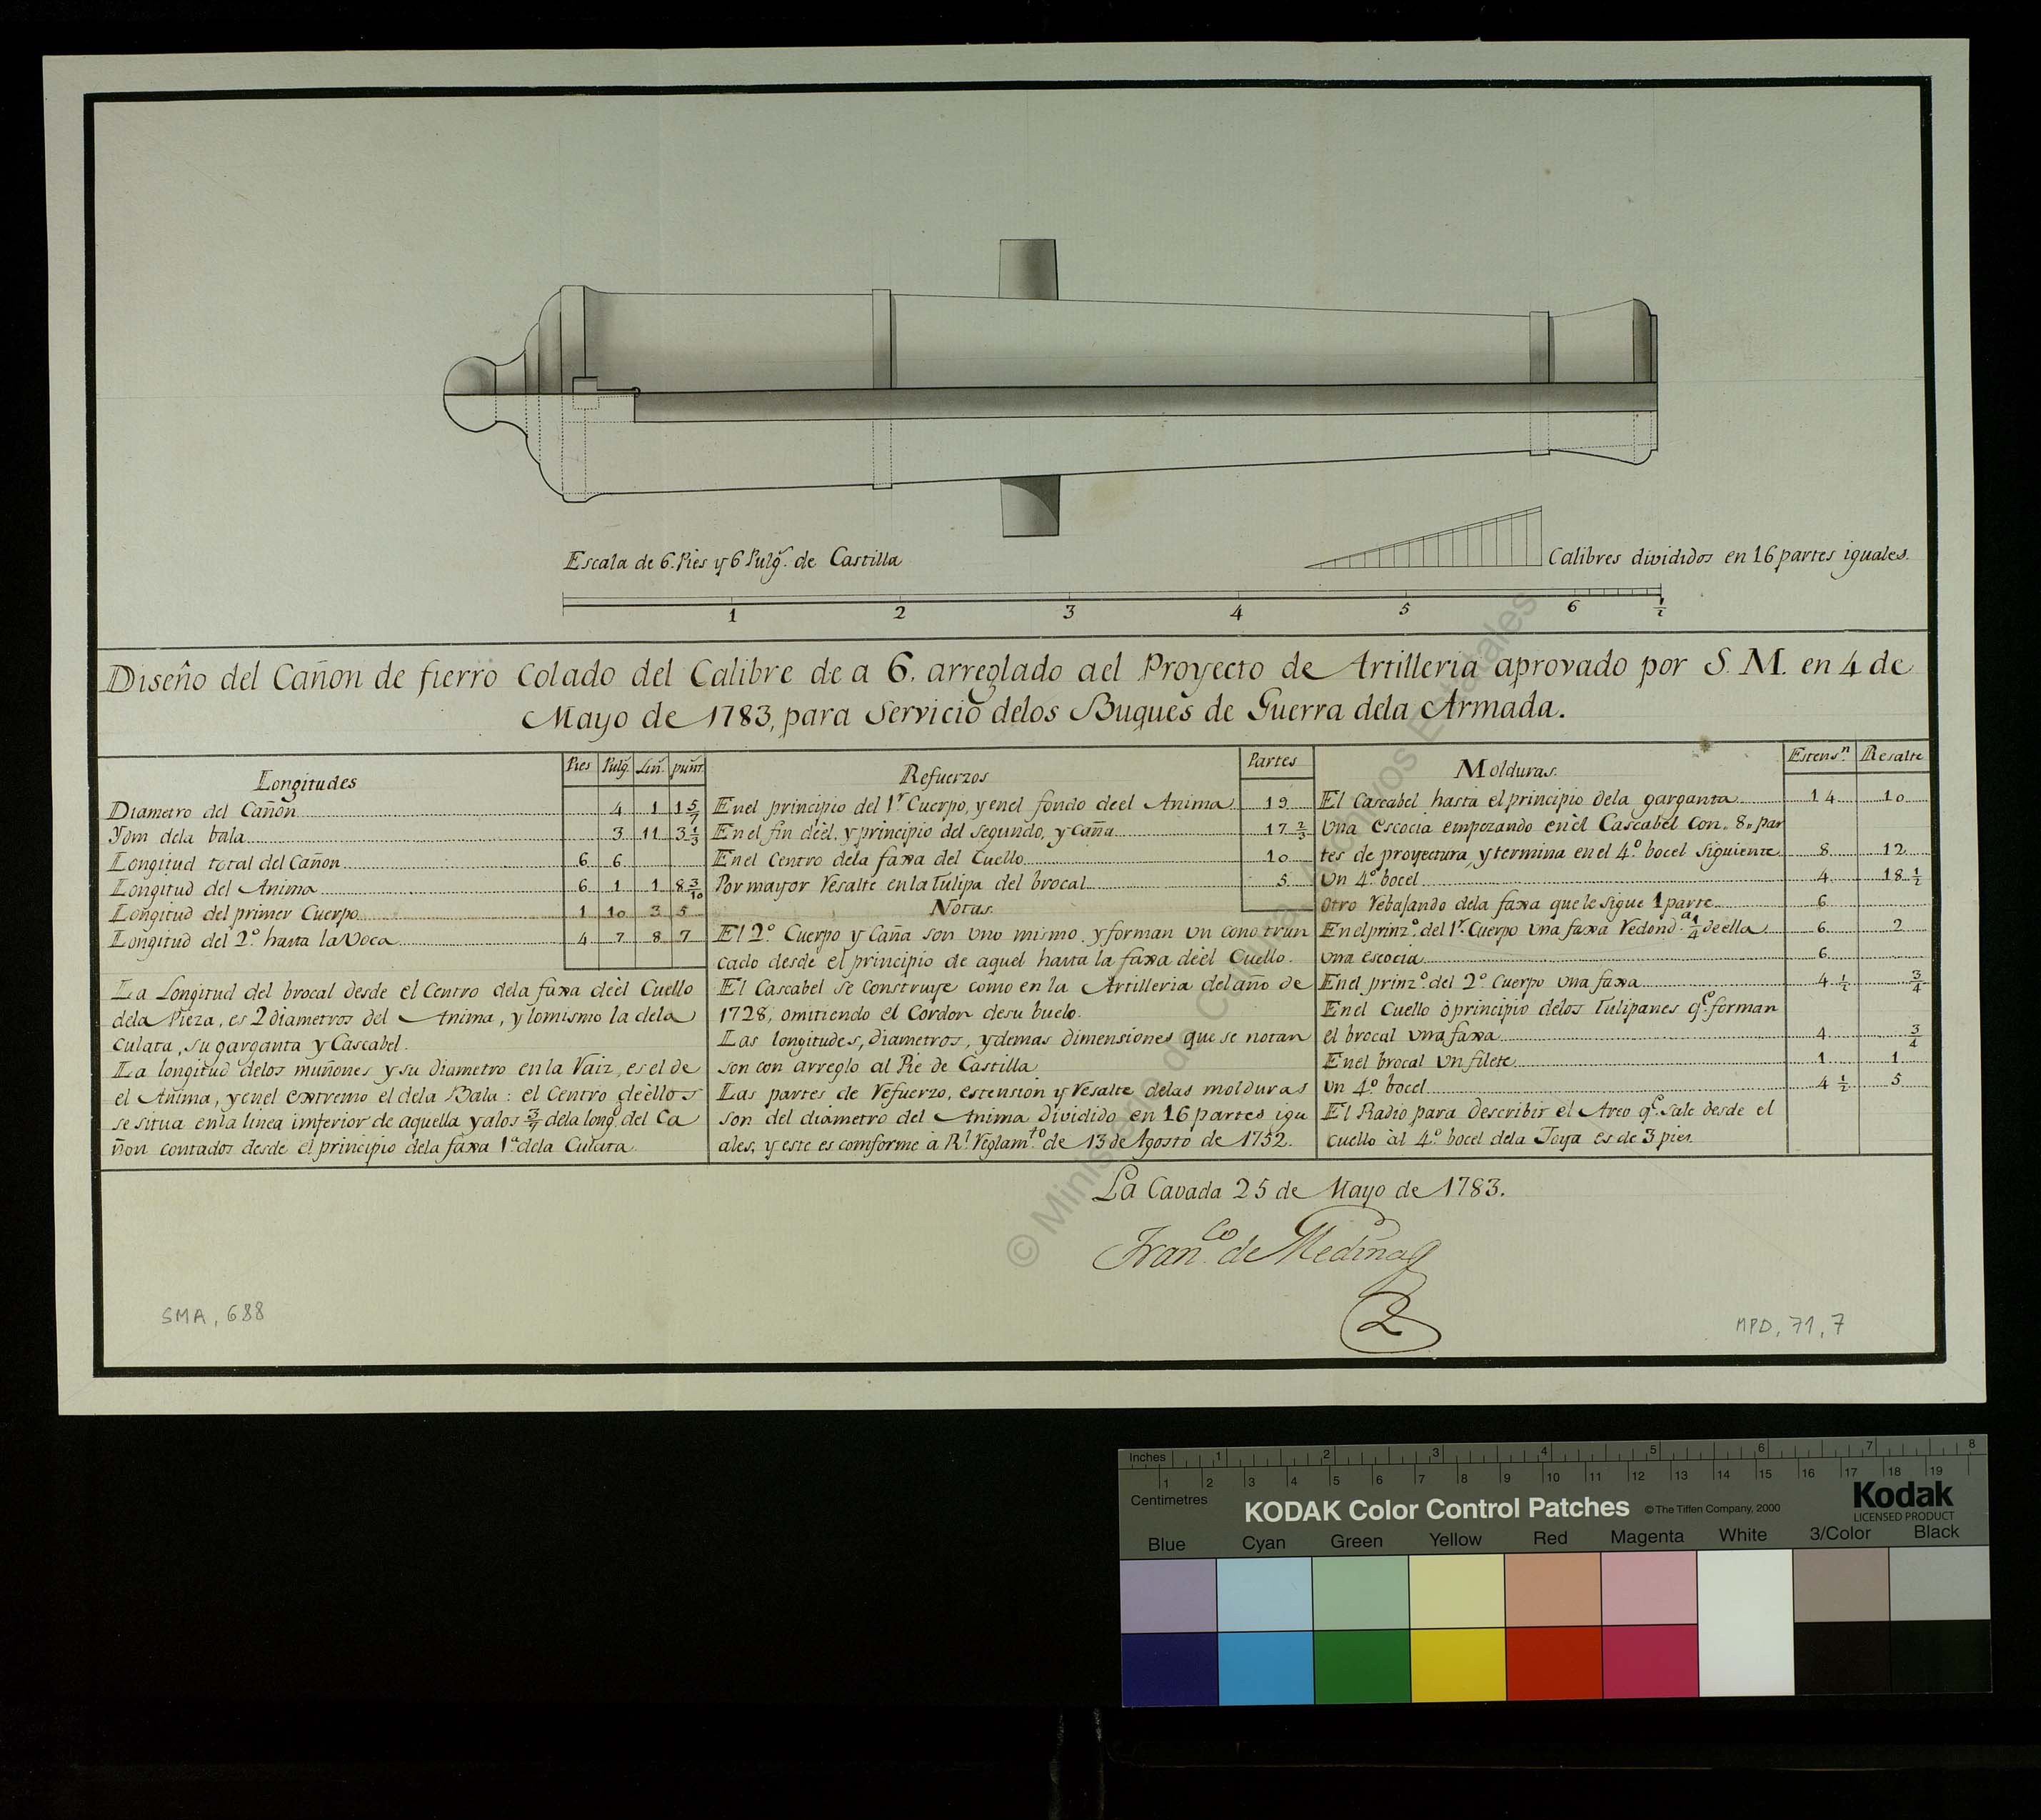 Escala de 6. Pies y 6 Pulg.ˢ de Castilla
Calibres divididos en 16 partes iguales.
1 2 3 4 5 6 ½
Diseño del Cañon de fierro Colado del Calibre de a 6. arreglado ael Proyecto de Artilleria aprovado por S. M. en 4 de
Mayo de 1783, para Servicio delos Buques de Guerra dela Armada.
Longitudes Pies Pulg.ˢ Lin.ˢ punt.ˢ
Diametro del Cañon 4 1 1 5/7
Ydm dela bala 3 11 3 1/3
Longitud total del Cañon 6 6
Longitud del Anima 6 1 1 8 3/10
Longitud del primer Cuerpo 1 10 3 5
Longitud del 2.º hasta la Voca 4 7 8 7
La Longitud del brocal desde el Centro dela faxa deèl Cuello
dela Pieza, es 2 diametros del Anima, y lo mismo la dela
Culata, su garganta y Cascabel.
La longitud delos muñones y su diametro en la Vaiz, es el de
el Anima, y en el extremo el dela Bala: el Centro deèllos
se situa en la linea imferior de aquella y alos 3/7 dela long.ᵈ del Ca
ñon contados desde el principio dela faxa 1.ª dela Culata.
Refuerzos Partes
En el principio del 1.ʳ Cuerpo, y en el fondo deel Anima 19
En el fin deèl, y principio del segundo, y Caña 17 2/3
En el Centro dela faxa del Cuello 10
Por mayor Resalte en la Tulipa del brocal 5
Notas.
El 2.º Cuerpo y Caña son uno mismo, y forman un cono trun
cado desde el principio de aquel hasta la faxa deèl Cuello.
El Cascabel se Construye como en la Artilleria del año de
1728, omitiendo el Cordon de su buelo.
Las longitudes, diametros, y demas dimensiones que se notan
son con arreglo al Pie de Castilla
Las partes de Refuerzo, estension y Resalte delas molduras
son del diametro del Anima dividido en 16 partes igu
ales, y este es comforme à R.ˡ Reglam.ᵗᵒ de 13 de Agosto de 1752.
Molduras. Estens.ⁿ Resalte
El Cascabel hasta el principio dela garganta 14 10
Una escocia empezando en èl Cascabel Con „ 8 „ par
tes de proyectura, y termina en el 4.º bocel siguiente 8 12
Un 4.º bocel 4 18 1/2
Otro Rebajando dela faxa que le sigue 1 parte 6
En el prinz.º del 1.ʳ Cuerpo una faxa Redond.ª 1/4 de ella 6 2
Una escocia 6
En el prinz.º del 2.º Cuerpo una faxa 4 1/2 3/4
En el Cuello ò principio delos Tulipanes q.ᵉ forman
el brocal una faxa 4 3/4
En el brocal Un filete 1 1
Un 4.º bocel 4 1/2 5
El Radio para describir el Arco q.ᵉ sale desde el
cuello àl 4.º bocel dela Joya es de 3 pies.
La Cavada 25 de Mayo de 1783.
Fran.ᶜᵒ de Medina
SMA, 688
MPD, 71, 7
© Ministerio de Cultura. Archivos Estatales
Inches 1 2 3 4 5 6 7 8
1 2 3 4 5 6 7 8 9 10 11 12 13 14 15 16 17 18 19
Centimetres
KODAK Color Control Patches © The Tiffen Company, 2000 Kodak
LICENSED PRODUCT
Blue Cyan Green Yellow Red Magenta White 3/Color Black